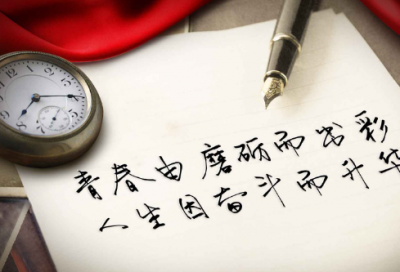 青春由磨砺而出彩
人生因奋斗而升华